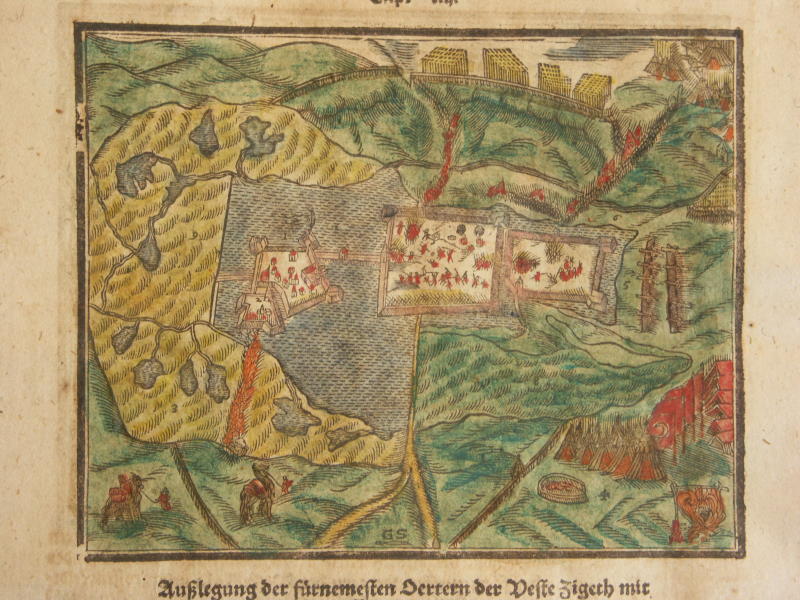 GS
Außlegung der fürnemesten Oertern der Veste Zigeth mit